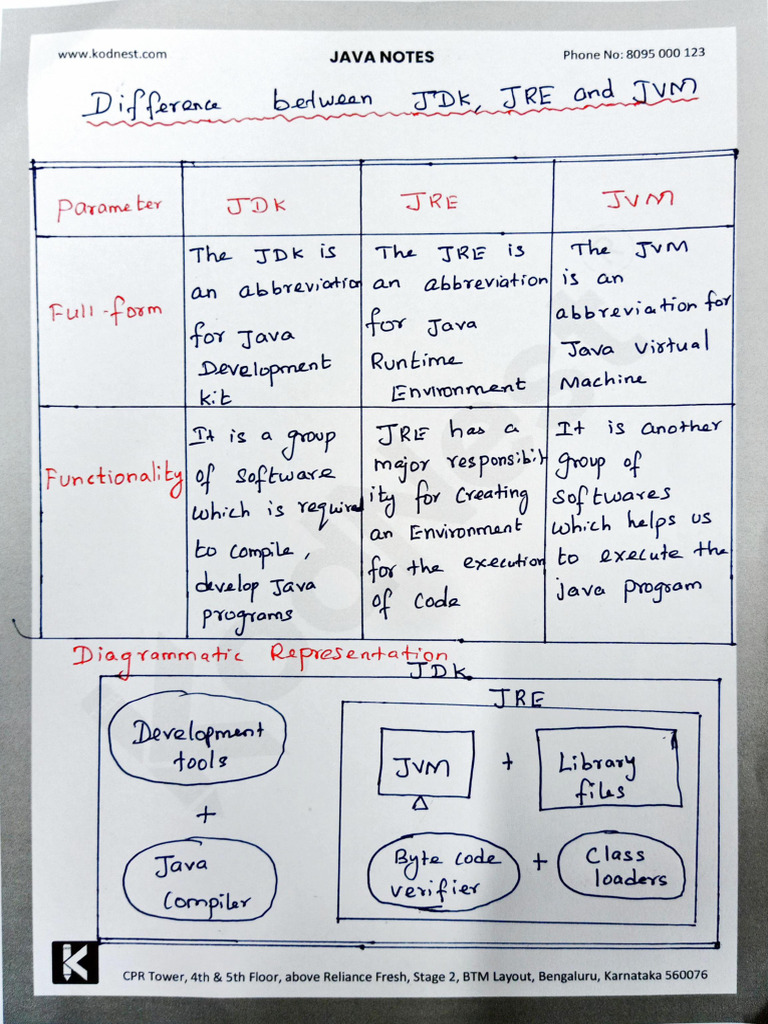 www.kodnest.com
JAVA NOTES
Phone No: 8095 000 123
Difference between JDK, JRE and JVM
Parameter
JDK
JRE
JVM
Full-form
The JDK is
an abbreviation
for Java
Development
kit
The JRE is
an abbreviation
for Java
Runtime
Environment
The JVM
is an
abbreviation for
Java Virtual
Machine
Functionality
It is a group
of software
which is required
to compile,
develop Java
programs
JRE has a
major responsibil
ity for creating
an Environment
for the execution
of code
It is another
group of
softwares
which helps us
to execute the
java program
Diagrammatic Representation
JDK
JRE
Development
tools
+
Java
Compiler
JVM
+
Library
files
Byte code
verifier
+
Class
loaders
KodNest
K
CPR Tower, 4th & 5th Floor, above Reliance Fresh, Stage 2, BTM Layout, Bengaluru, Karnataka 560076